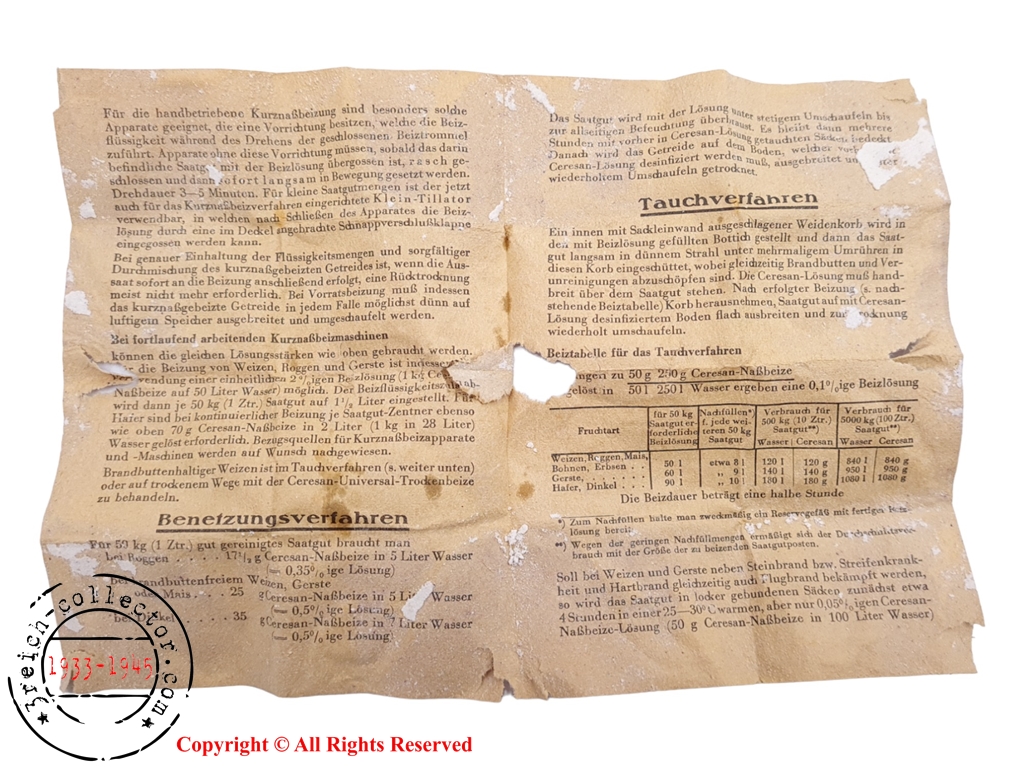 Für die handbetriebene Kurznaßbeizung sind besonders solche
Apparate geeignet, die eine Vorrichtung besitzen, welche die Beiz-
flüssigkeit während des Drehens der geschlossenen Beiztrommel
zuführt. Apparate ohne diese Vorrichtung müssen, sobald das darin
befindliche Saatgut mit der Beizlösung übergossen ist, rasch ge-
schlossen und dann sofort langsam in Bewegung gesetzt werden.
Drehdauer 3—5 Minuten. Für kleine Saatgutmengen ist der jetzt
auch für das Kurznaßbeizverfahren eingerichtete Klein-Tillator
verwendbar, in welchen nach Schließen des Apparates die Beiz-
lösung durch eine im Deckel angebrachte Schnappverschlußklappe
eingegossen werden kann.
Bei genauer Einhaltung der Flüssigkeitsmengen und sorgfältiger
Durchmischung des kurznaßgebeizten Getreides ist, wenn die Aus-
saat sofort an die Beizung anschließend erfolgt, eine Rücktrocknung
meist nicht mehr erforderlich. Bei Vorratsbeizung muß indessen
das kurznaßgebeizte Getreide in jedem Falle möglichst dünn auf
luftigem Speicher ausgebreitet und umgeschaufelt werden.
Bei fortlaufend arbeitenden Kurznaßbeizmaschinen
können die gleichen Lösungsstärken wie oben gebraucht werden.
die Beizung von Weizen, Roggen und Gerste ist indessen
wendung einer einheitlichen 2%igen Beizlösung (1 kg Ceresan-
Naßbeize auf 50 Liter Wasser) möglich. Der Beizflüssigkeits
wird dann je 50 kg (1 Ztr.) Saatgut auf 1½ Liter eingestellt. Für
Hafer sind bei kontinuierlicher Beizung je Saatgut-Zentner ebenso
wie oben 70 g Ceresan-Naßbeize in 2 Liter (1 kg in 28 Liter)
Wasser gelöst erforderlich. Bezugsquellen für Kurznaßbeizapparate
und -Maschinen werden auf Wunsch nachgewiesen.
Brandbuttenhaltiger Weizen ist im Tauchverfahren (s. weiter unten)
oder auf trockenem Wege mit der Ceresan-Universal-Trockenbeize
zu behandeln.
Benetzungsverfahren
Für 50 kg (1 Ztr.) gut gereinigtes Saatgut braucht man
bei Roggen . . . 17½ g Ceresan-Naßbeize in 5 Liter Wasser
(= 0,35%ige Lösung)
bei brandbuttenfreiem Weizen, Gerste
oder Mais . . . . 25 g Ceresan-Naßbeize in 5 Liter Wasser
(= 0,5%ige Lösung)
bei Dinkel . . . 35 g Ceresan-Naßbeize in 7 Liter Wasser
(= 0,5%ige Lösung)
Das Saatgut wird mit der Lösung unter stetigem Umschaufeln bis
zur allseitigen Befeuchtung überbraust. Es bleibt dann mehrere
Stunden mit vorher in Ceresan-Lösung getauchten Säcken bedeckt
Danach wird das Getreide auf dem Boden, welcher vorher
Ceresan-Lösung desinfiziert werden muß, ausgebreitet und unter
wiederholtem Umschaufeln getrocknet.
Tauchverfahren
Ein innen mit Sackleinwand ausgeschlagener Weidenkorb wird in
den mit Beizlösung gefüllten Bottich gestellt und dann das Saat-
gut langsam in dünnem Strahl unter mehrmaligem Umrühren in
diesen Korb eingeschüttet, wobei gleichzeitig Brandbutten und Ver-
unreinigungen abzuschöpfen sind. Die Ceresan-Lösung muß hand-
breit über dem Saatgut stehen. Nach erfolgter Beizung (s. nach-
stehende Beiztabelle) Korb herausnehmen, Saatgut auf mit Ceresan-
Lösung desinfiziertem Boden flach ausbreiten und zur Trocknung
wiederholt umschaufeln.
Beiztabelle für das Tauchverfahren
zu 50 g 250 g Ceresan-Naßbeize
gelöst in 50 l 250 l Wasser ergeben eine 0,1%ige Beizlösung
Fruchtart | für 50 kg Saatgut erforderliche Beizlösung | Nachfüllen*) f. jede weiteren 50 kg Saatgut | Verbrauch für 500 kg (10 Ztr.) Saatgut**) Wasser Ceresan | Verbrauch für 5000 kg (100 Ztr.) Saatgut**) Wasser Ceresan
Weizen, Roggen, Mais,
Bohnen, Erbsen . . . 50 l etwa 8 l 120 l 120 g 840 l 840 g
Gerste, . . . . . . . 60 l „ 9 l 140 l 140 g 950 l 950 g
Hafer, Dinkel . . . . 90 l „ 10 l 180 l 180 g 1080 l 1080 g
Die Beizdauer beträgt eine halbe Stunde
*) Zum Nachfüllen halte man zweckmäßig ein Reservegefäß mit fertiger Beiz-
lösung bereit.
**) Wegen der geringen Nachfüllmengen ermäßigt sich der Durchschnittsver-
brauch mit der Größe der zu beizenden Saatgutposten.
Soll bei Weizen und Gerste neben Steinbrand bzw. Streifenkrank-
heit und Hartbrand gleichzeitig auch Flugbrand bekämpft werden,
so wird das Saatgut in locker gebundenen Säcken zunächst etwa
4 Stunden in einer 25—30° C warmen, aber nur 0,05%igen Ceresan-
Naßbeize-Lösung (50 g Ceresan-Naßbeize in 100 Liter Wasser)
3reich-collector.com
1933-1945
Copyright © All Rights Reserved